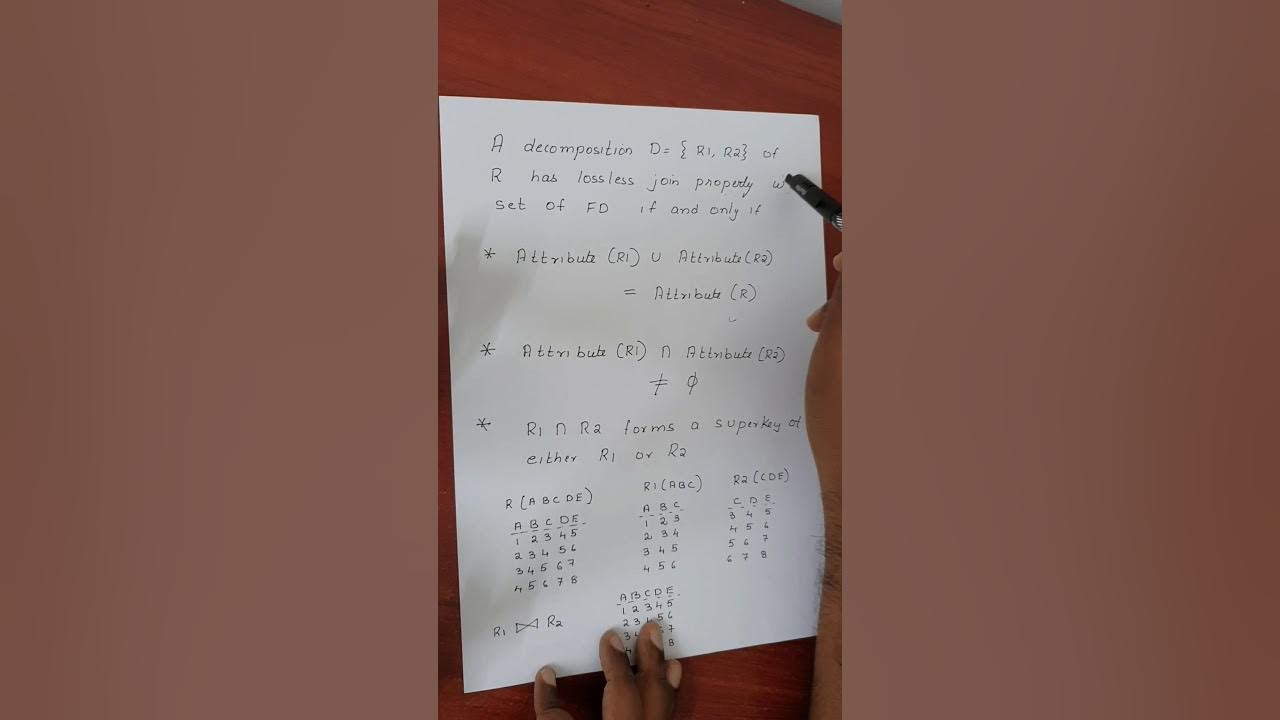 A decomposition D = { R1, R2} of
R has lossless join property
set of FD if and only if
* Attribute (R1) ∪ Attribute (R2)
= Attribute (R)
* Attribute (R1) ∩ Attribute (R2)
≠ ϕ
* R1 ∩ R2 forms a superkey of
either R1 or R2
R (ABCDE) R1 (ABC) R2 (CDE)
A B C D E A B C C D E
1 2 3 4 5 1 2 3 3 4 5
2 3 4 5 6 2 3 4 4 5 6
3 4 5 6 7 3 4 5 5 6 7
4 5 6 7 8 4 5 6 6 7 8
R1 ⋈ R2
A B C D E
1 2 3 4 5
2 3 5 6
3 7
8